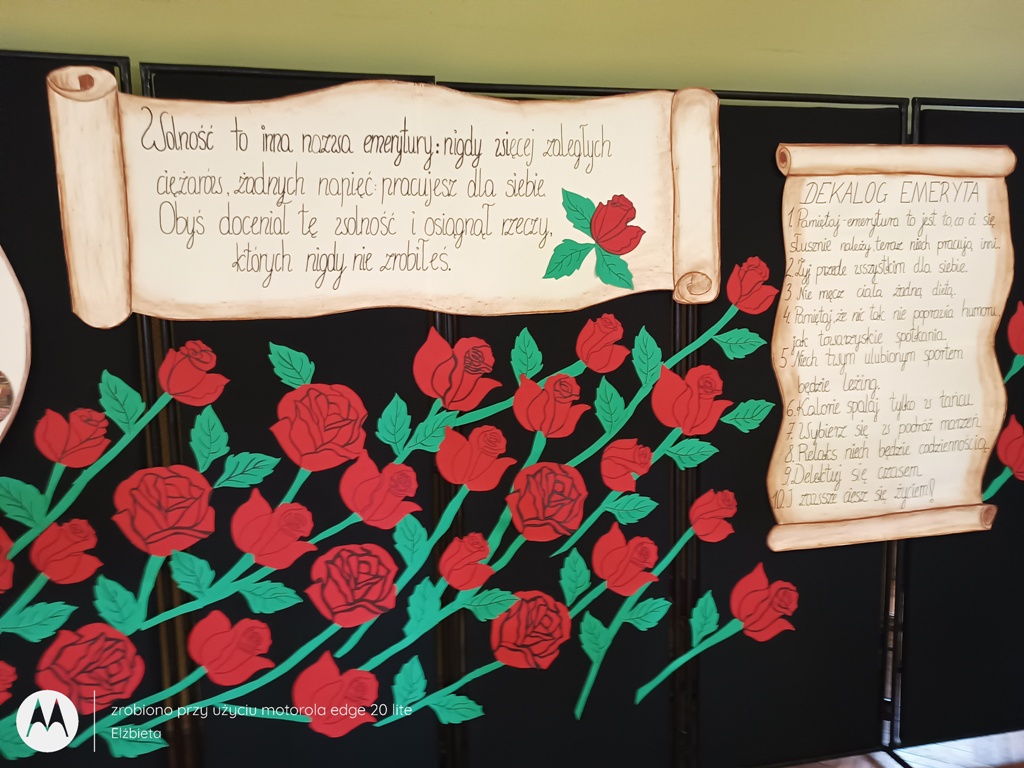 Wolność to inna nazwa emerytury: nigdy więcej zaległych
ciężarów, żadnych napięć: pracujesz dla siebie.
Obyś doceniał tę wolność i osiągnął rzeczy,
których nigdy nie zrobiłeś.
DEKALOG EMERYTA
1. Pamiętaj-emerytura to jest to, co ci się
słusznie należy, teraz niech pracują inni.
2. Żyj przede wszystkim dla siebie.
3. Nie męcz ciała żadną dietą.
4. Pamiętaj, że nic tak nie poprawia humoru,
jak towarzyskie spotkania.
5. Niech twym ulubionym sportem
będzie leżing.
6. Kalorie spalaj tylko w tańcu.
7. Wybierz się w podróż marzeń.
8. Relaks niech będzie codziennością.
9. Delektuj się czasem.
10. I zawsze ciesz się życiem!
zrobiono przy użyciu motorola edge 20 lite
Elżbieta